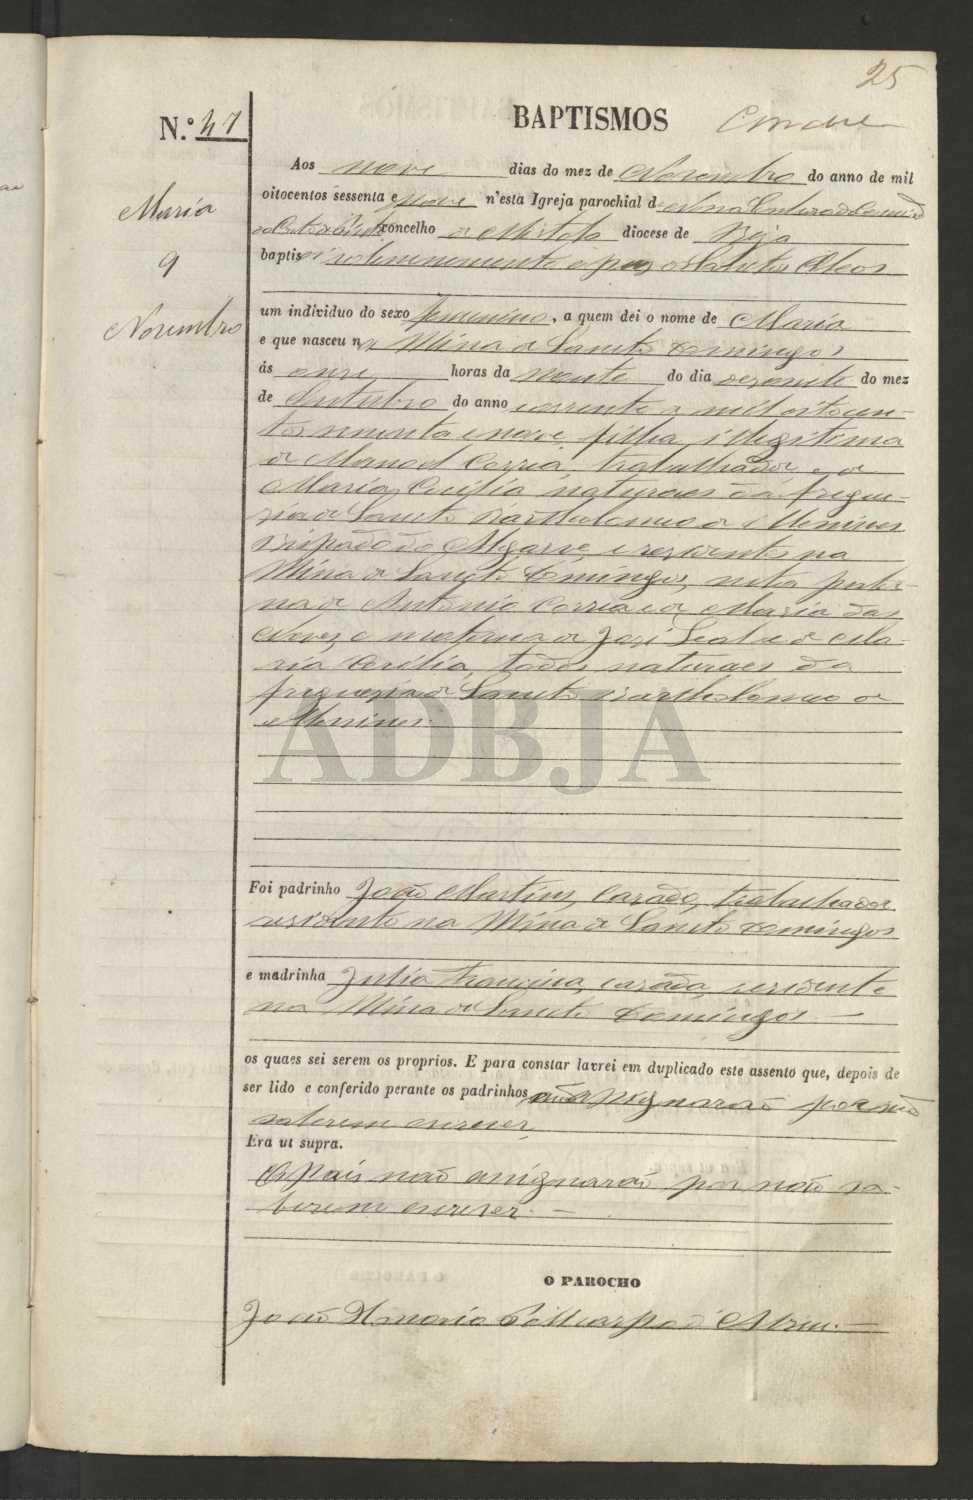 25
N.º 47
BAPTISMOS
Aos nove dias do mez de Novembro do anno de mil
Maria
oitocentos sessenta e nove n'esta Igreja parochial de Nossa Senhora da Conceição
concelho de Mertola diocese de Beja
9
baptisei solemnemente e puz os Sanctos Oleos
Novembro
um individuo do sexo femenino, a quem dei o nome de Maria
e que nasceu na Mina de Sancto Domingos
ás onze horas da noute do dia dezasete do mez
de Outubro do anno corrente de mil oitocen-
tos secenta e nove, filha illegitima
de Manoel Correia, trabalhador, e de
Maria Cecilia naturaes da fregue-
zia de Sancto Bartholomeu de Messines
Bispado do Algarve, e residentes na
Mina de Sancto Domingos, neta pater-
na de Antonio Correia e de Maria das
Neves, e materna de José Leal e de Ma-
ria Cecilia, todos naturaes da
freguezia de Sancto Bartholomeu de
Messines.
ADBJA
Foi padrinho João Martins, cazado, trabalhador
residente na Mina de Sancto Domingos
e madrinha Julia Francisca, cazada, residente
na Mina de Sancto Domingos. —
os quaes sei serem os proprios. E para constar lavrei em duplicado este assento que, depois de
ser lido e conferido perante os padrinhos não assignarão por não
saberem escrever
Era ut supra.
Os Pais não assignarão por não sa-
berem escrever. —
O PAROCHO
João Maria Abreu. —